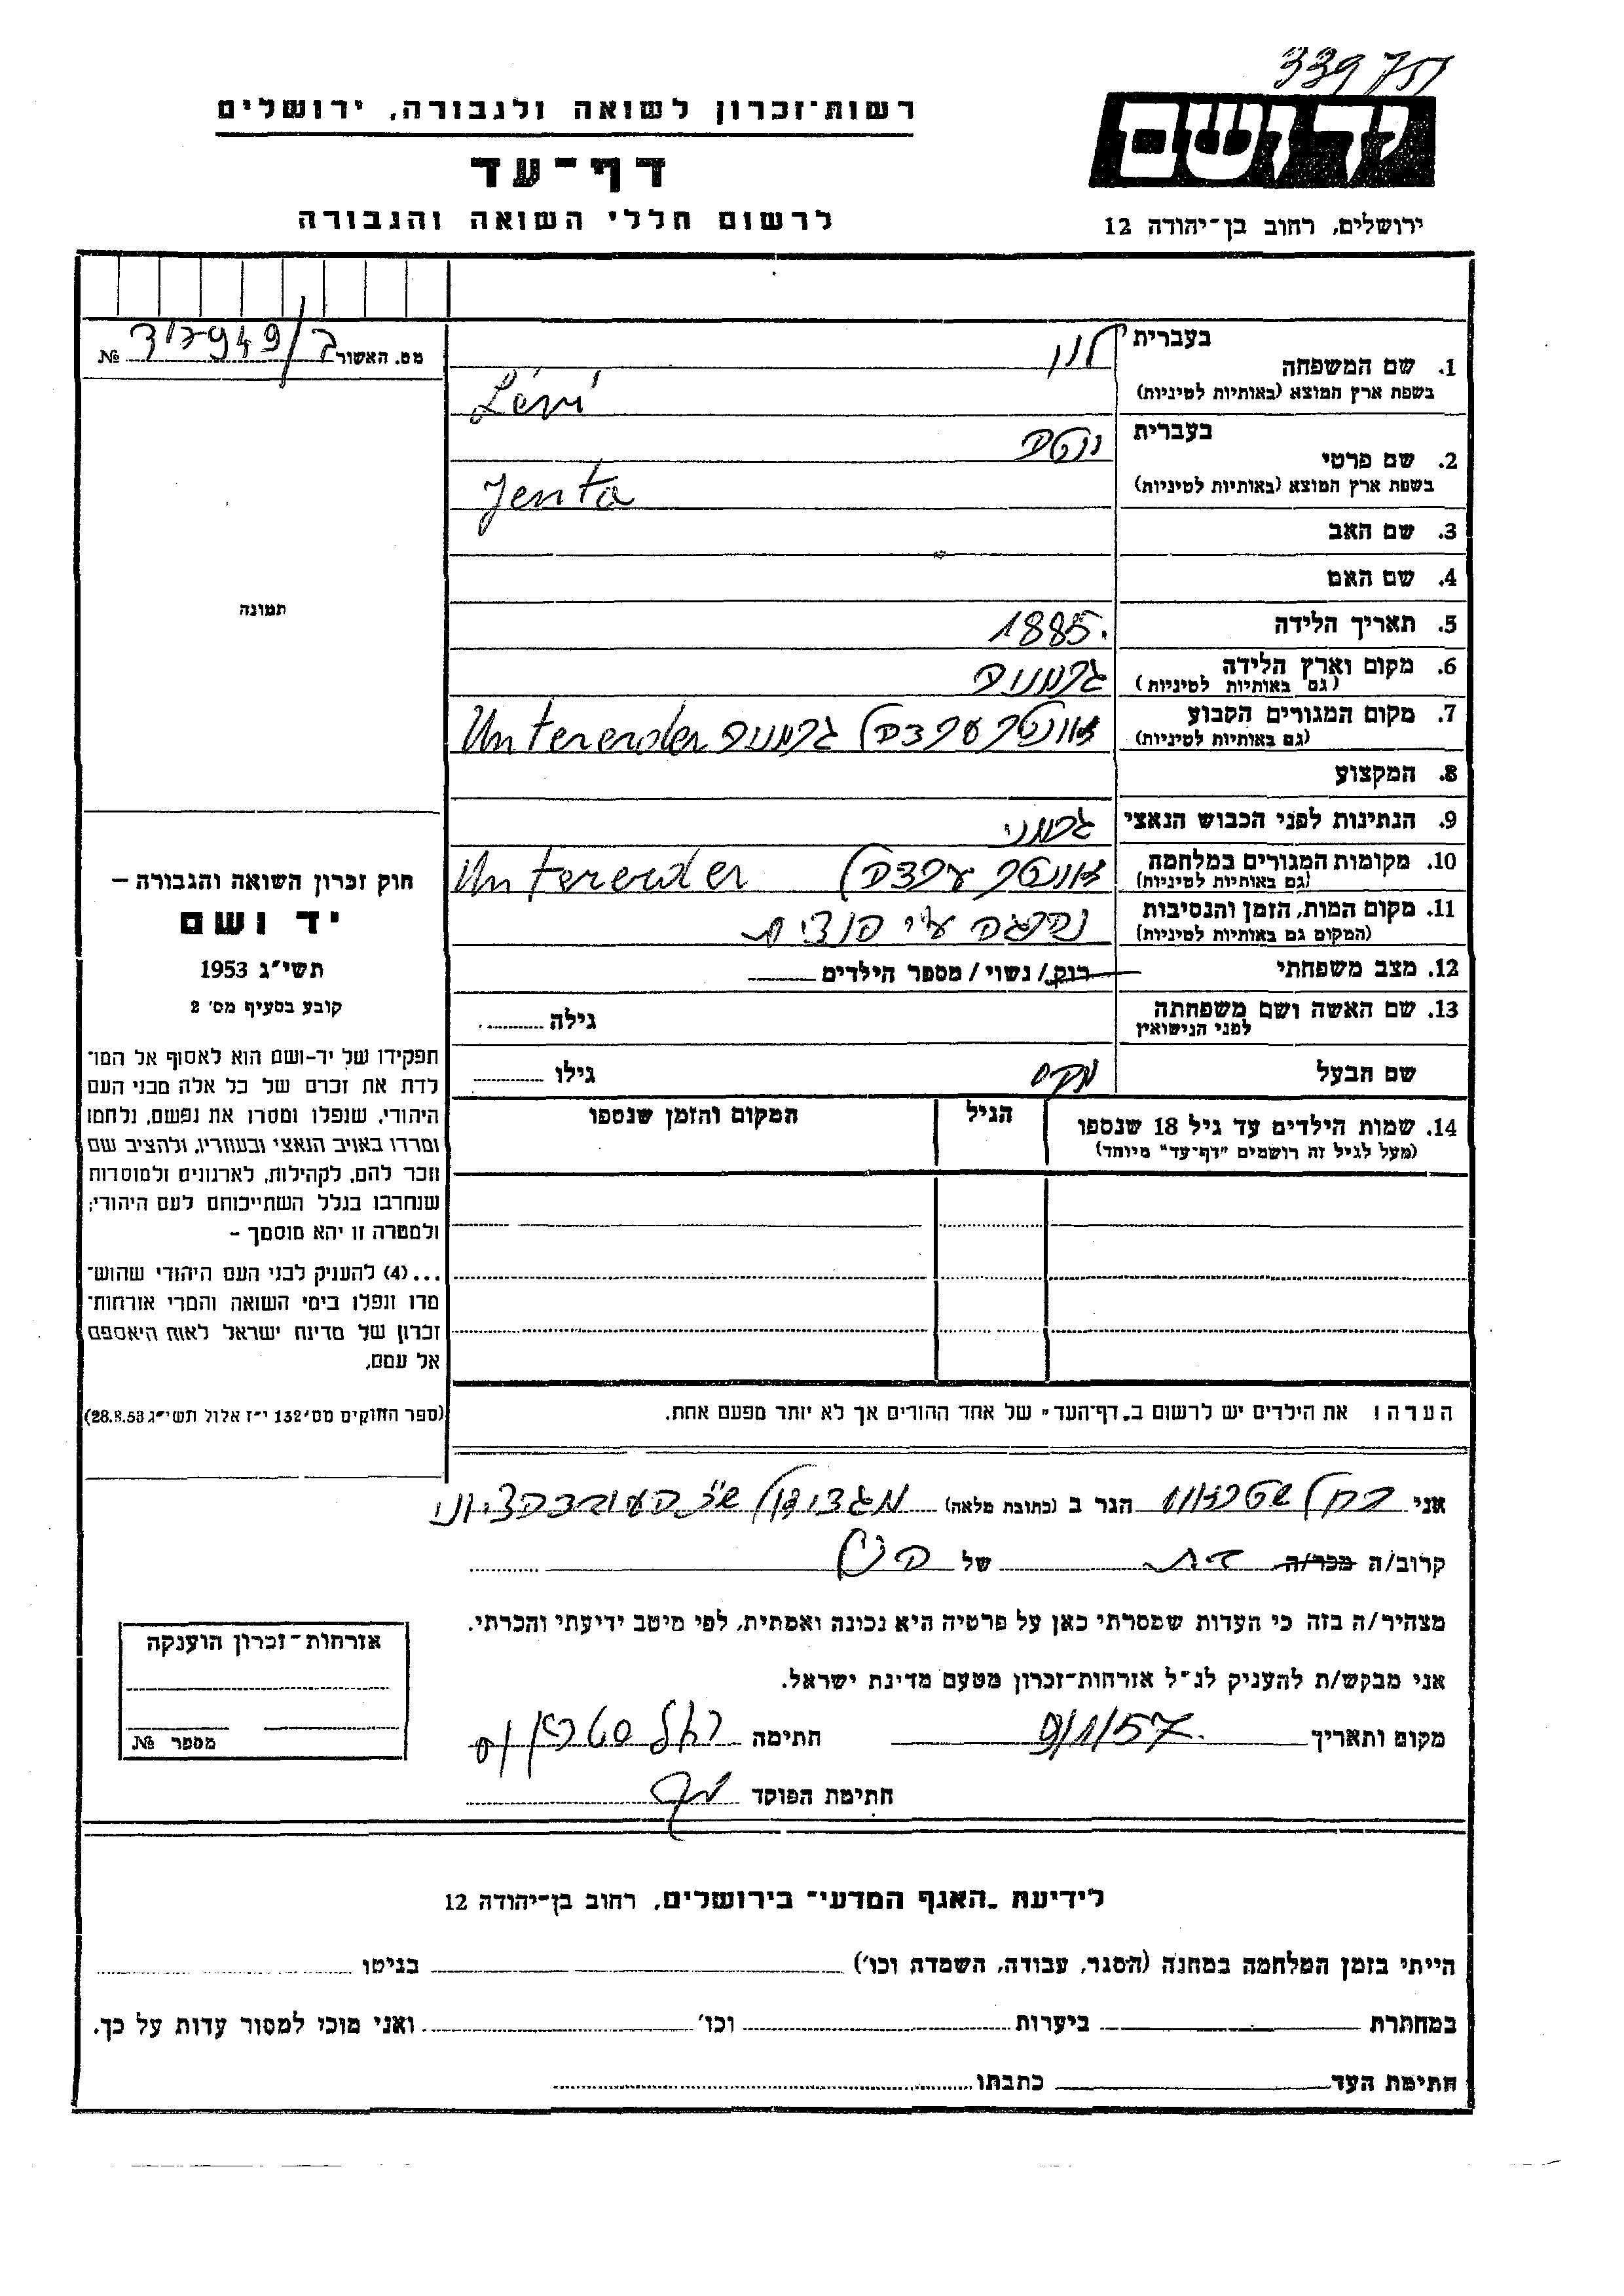 339751
ידושם
רשות-זכרון לשואה ולגבורה, ירושלים
דף-עד
לרשום חללי השואה והגבורה
ירושלים, רחוב בן-יהודה 12
מס. האשור №
בעברית
1. שם המשפחה
בשפת ארץ המוצא (באותיות לטיניות) Lévi
בעברית
2. שם פרטי
בשפת ארץ המוצא (באותיות לטיניות) Jenta
3. שם האב
4. שם האם
5. תאריך הלידה 1885.
6. מקום וארץ הלידה גרמניה
(גם באותיות לטיניות)
7. מקום המגורים הקבוע גרמניה Untererder
(גם באותיות לטיניות)
8. המקצוע
9. הנתינות לפני הכבוש הנאצי גרמני
10. מקומות המגורים במלחמה Untererder
(גם באותיות לטיניות)
11. מקום המות, הזמן והנסיבות נהרגה ע"י הנצים
(המקום גם באותיות לטיניות)
12. מצב משפחתי רווק / נשוי / מספר הילדים
13. שם האשה ושם משפחתה גילה
לפני הנישואין
שם הבעל גילו
14. שמות הילדים עד גיל 18 שנספו הגיל המקום והזמן שנספו
(מעל לגיל זה רושמים "דף-עד" מיוחד)
הערה! את הילדים יש לרשום ב"דף-העד" של אחד ההורים אך לא יותר מפעם אחת.
תמונה
חוק זכרון השואה והגבורה –
יד ושם
תשי"ג 1953
קובע בסעיף מס' 2
תפקידו של יד-ושם הוא לאסוף אל המו-
לדת את זכרם של כל אלה מבני העם
היהודי, שנפלו ומסרו את נפשם, נלחמו
ומרדו באויב הנאצי ובעוזריו, ולהציב שם
וזכר להם, לקהילות, לארגונים ולמוסדות
שנחרבו בגלל השתייכותם לעם היהודי;
ולמטרה זו יהא מוסמך –
...(4) להעניק לבני העם היהודי שהוש-
מדו ונפלו בימי השואה והמרי אזרחות-
זכרון של מדינת ישראל לאות היאספם
אל עמם.
(ספר החוקים מס' 132 י"ז אלול תשי"ג 28.8.53)
אני רחל שטראוס הגר ב (כתובת מלאה) מגדיאל
קרוב/ה מכר/ה של
מצהיר/ה בזה כי העדות שמסרתי כאן על פרטיה היא נכונה ואמתית, לפי מיטב ידיעתי והכרתי.
אני מבקש/ת להעניק לנ"ל אזרחות-זכרון מטעם מדינת ישראל.
מקום ותאריך 9/1/57. חתימה רחל
חתימת הפוקד
אזרחות-זכרון הוענקה
מספר №
לידיעת "האגף המדעי" בירושלים, רחוב בן-יהודה 12
הייתי בזמן המלחמה במחנה (הסגר, עבודה, השמדה וכו') בגיטו
במחתרת ביערות וכו' ואני מוכן למסור עדות על כך.
חתימת העד כתבתו